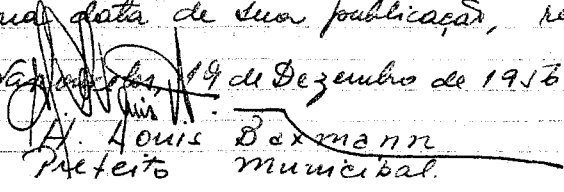 na data de sua publicação, re
19 de Dezembro de 1956
H. Louis Baxmann
Prefeito Municipal.